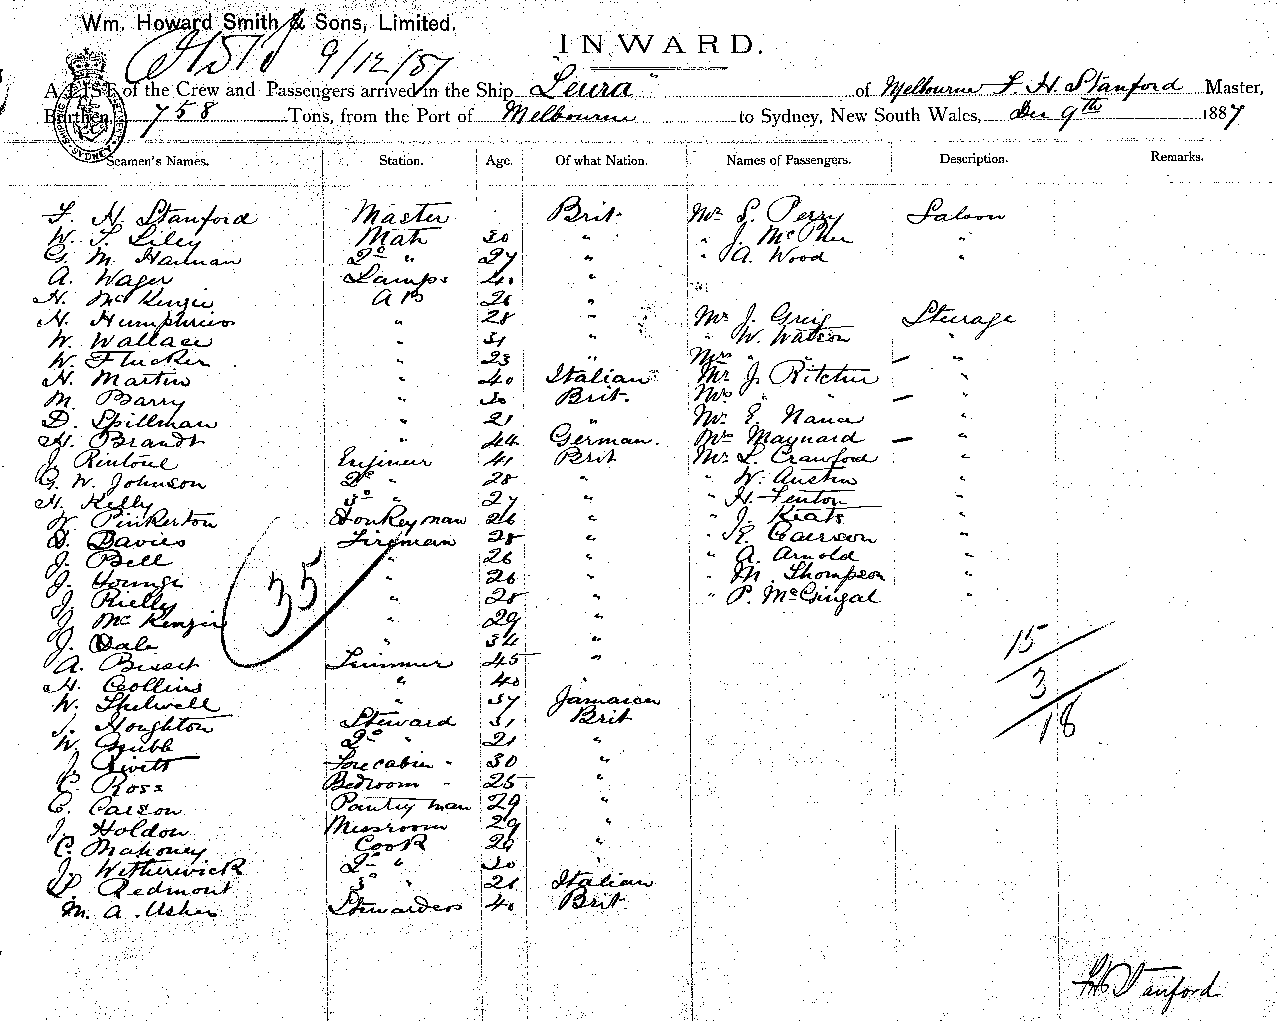 Wm. Howard Smith & Sons, Limited.
9/12/87
INWARD.
A LIST of the Crew and Passengers arrived in the Ship "Leura" of Melbourne F. H. Stanford Master,
Burthen, 758 Tons, from the Port of Melbourne to Sydney, New South Wales, Dec 9th 1887
Seamen's Names. Station. Age. Of what Nation. Names of Passengers. Description. Remarks.
F. H. Stanford Master Brit. Mr S. Perry Saloon
W. F. Liley Mate 30 " " J. McPhee "
G. M. Hannan 2d " 27 " " A. Wood "
A. Wager Lamps 40 "
H. McKenzie AB 26 "
H. Humphries " 28 " Mr J. Greig Steerage
W. Wallace " 31 " " W. Watson "
W. Flucker " 23 " Mrs " " — "
H. Martin " 40 Italian Mr J. Ritchie "
M. Barry " 30 Brit. Mrs " " — "
D. Spillman " 21 " Mr E. Nana "
H. Brandt " 44 German. Mrs Maynard — "
J. Rintoul Engineer 41 Brit Mr L. Crawford "
G. W. Johnson 2d " 28 " " W. Austin "
H. Kelly 3d " 27 " " H. Fenton "
W. Pinkerton Donkeyman 26 " " J. Keats "
D. Davies Fireman 28 " " E. Carson "
J. Bell " 26 " " A. Arnold "
J. Younge " 26 " " M. Thompson "
J. Rielly " 28 " " P. McGingal "
J. McKenzie " 29 "
J. Dale " 34 "
A. Bisset Trimmer 45 "
H. Collins " 40 "
W. Shelwell " 37 Jamaican
J. Houghton Steward 31 Brit
W. Grubb 2d " 21 "
J. Rivett Forecabin " 30 "
C. Ross Bedroom " 25 "
C. Carson Pantryman 29 "
J. Holdon Messroom 29 "
C. Mahoney Cook 29 "
J. Witherwick 2d " 30 "
P. Redmont 3d " 21 Italian
M. A. Usher Stewardess 40 Brit
35
15
3
18
F H Stanford